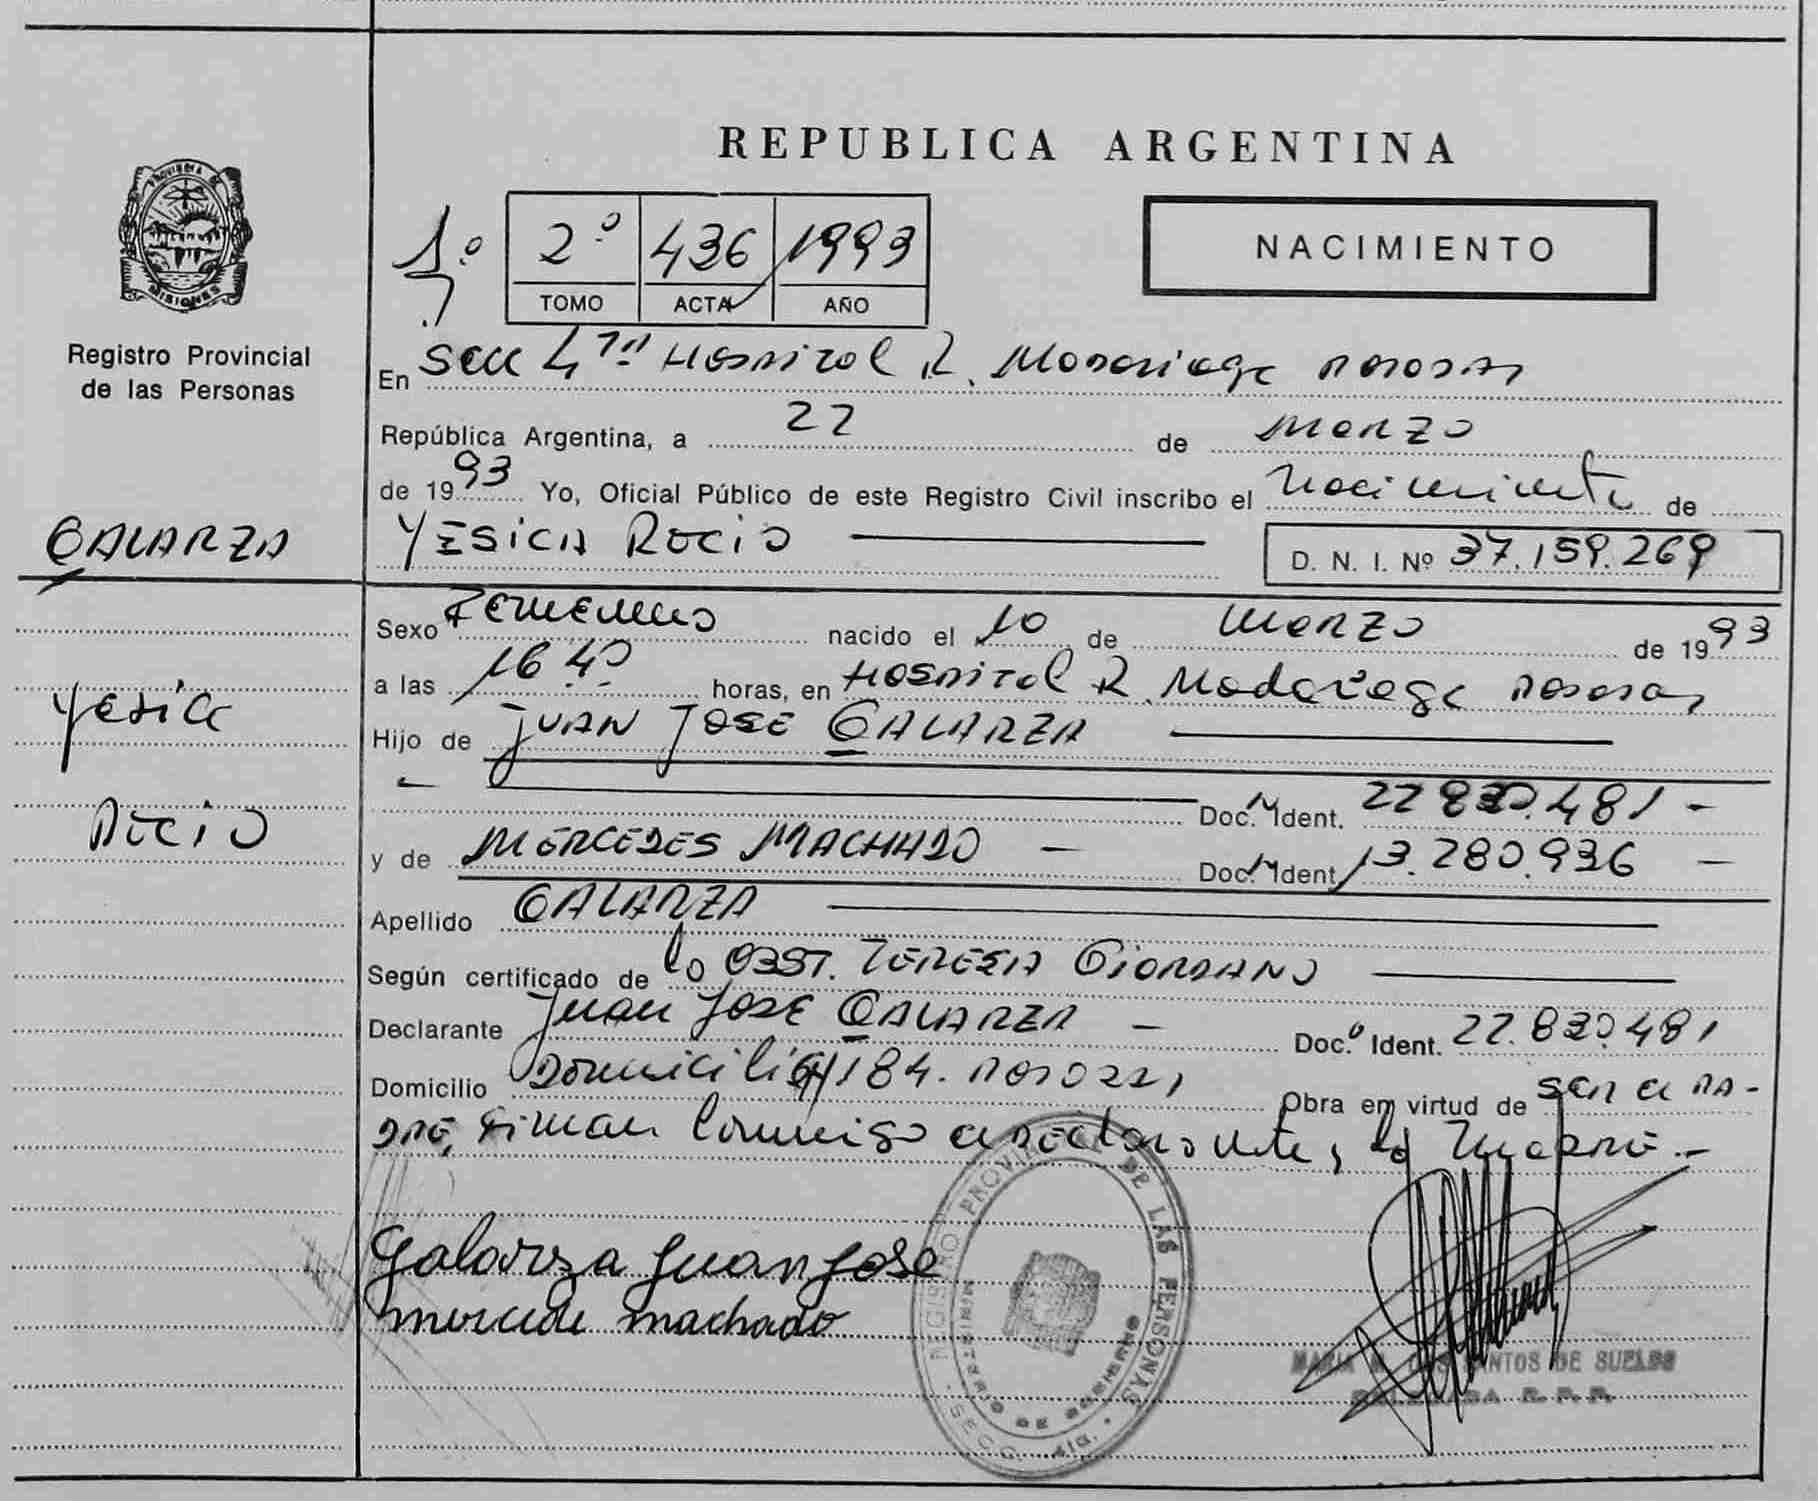 REPUBLICA ARGENTINA
PROVINCIA DE
MISIONES
Registro Provincial
de las Personas
1º
2º 436 1993
TOMO ACTA AÑO
NACIMIENTO
En Secc 4ta Hospital R. Madariaga Posadas
República Argentina, a 22 de Marzo
de 1993 Yo, Oficial Público de este Registro Civil inscribo el Nacimiento de
GALARZA
YESICA ROCIO
D. N. I. Nº 37.159.269
Sexo Femenino nacido el 10 de Marzo de 1993
a las 16 40 horas, en Hospital R. Madariaga Posadas
Yesica
Hijo de JUAN JOSE GALARZA
Doc. Ident. 22 830.481 -
Rocio
y de MERCEDES MACHADO - Doc. Ident. 13.280.936 -
Apellido GALARZA
Según certificado de la OBST. TERESA GIORDANO
Declarante Juan JOSE GALARZA - Doc. Ident. 22.830.481
Domicilio Domicilio 184. Posadas, Obra en virtud de ser el PA-
DRE, Firman conmigo el declarante, la Madre.-
Galarza Juan Jose
mercede machado
REGISTRO PROVINCIAL DE LAS PERSONAS
MINISTERIO DE GOBIERNO
SECC. 4ta.
MARIA M. DOS SANTOS DE SUELDO
DELEGADA R. P. P.